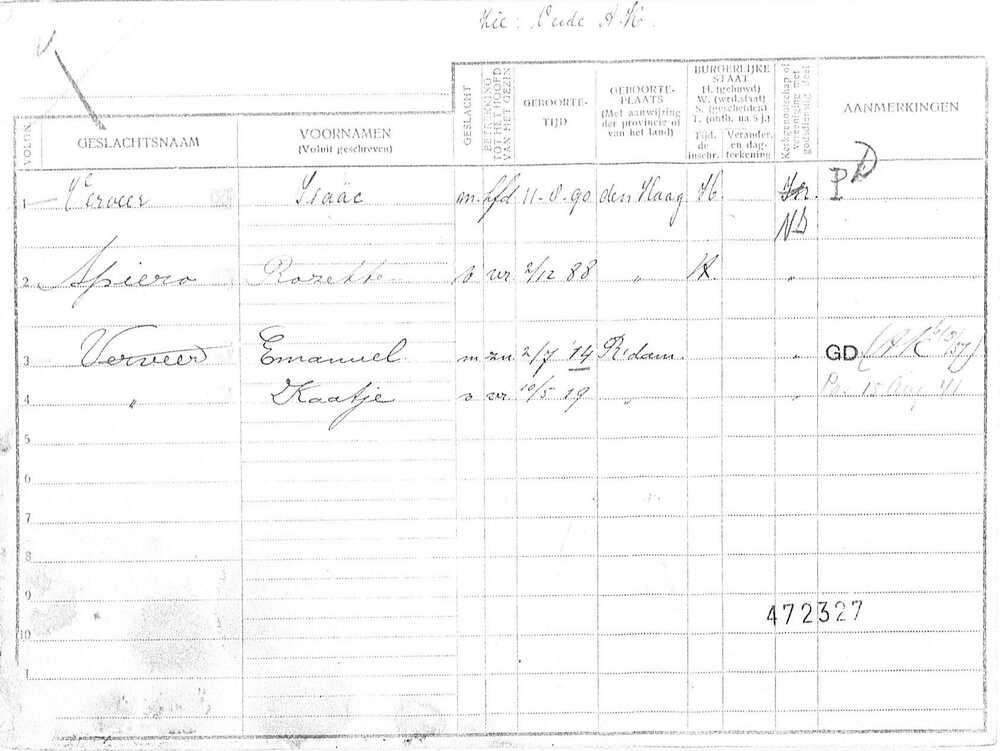 Zie: Oude A.K.
VOLGN.
GESLACHTSNAAM
VOORNAMEN
(Voluit geschreven)
GESLACHT
BETREKKING TOT HET HOOFD VAN HET GEZIN
GEBOORTE-
TIJD
GEBOORTE-
PLAATS
(Met aanwijzing
der provincie of
van het land)
BURGERLIJKE
STAAT
H. (gehuwd)
W. (wed.staat)
S. (gescheiden)
T. (ontb. na. 5 j.)
Tijd.
de
inschr.
Verander.
en dag-
teekening
Kerkgenootschap of vereeniging met godsdienstig doel
AANMERKINGEN
1 Verveer Isaäc m. hfd 11-8-90 den Haag H. Isr. P D
NI
2 Spiero Rozette v vr 2/12 88 " H. "
3 Verveer Emanuel m zn 2/7 '14 R'dam. " GD (AK
4 " Kaatje v vr 10/5 19 " " 15 Aug 41
5
6
7
8
9
10
1
472327